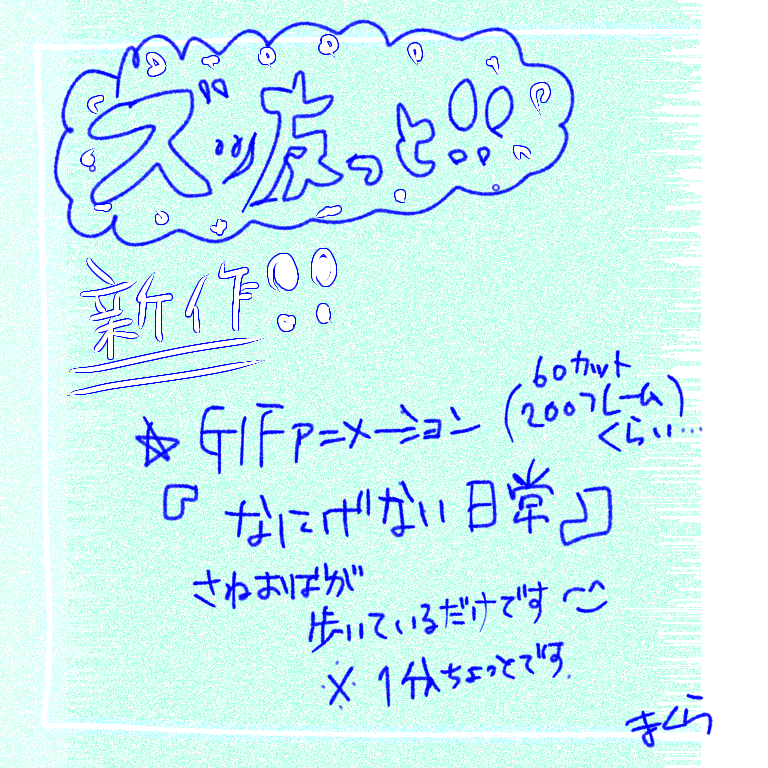 ズッ友っと!!
新作!!
☆ GIFアニメーション (60カット
200フレーム)
くらい…
『なにげない日常』
さねおばが
歩いているだけです
※ 1分ちょっとです.
まくら